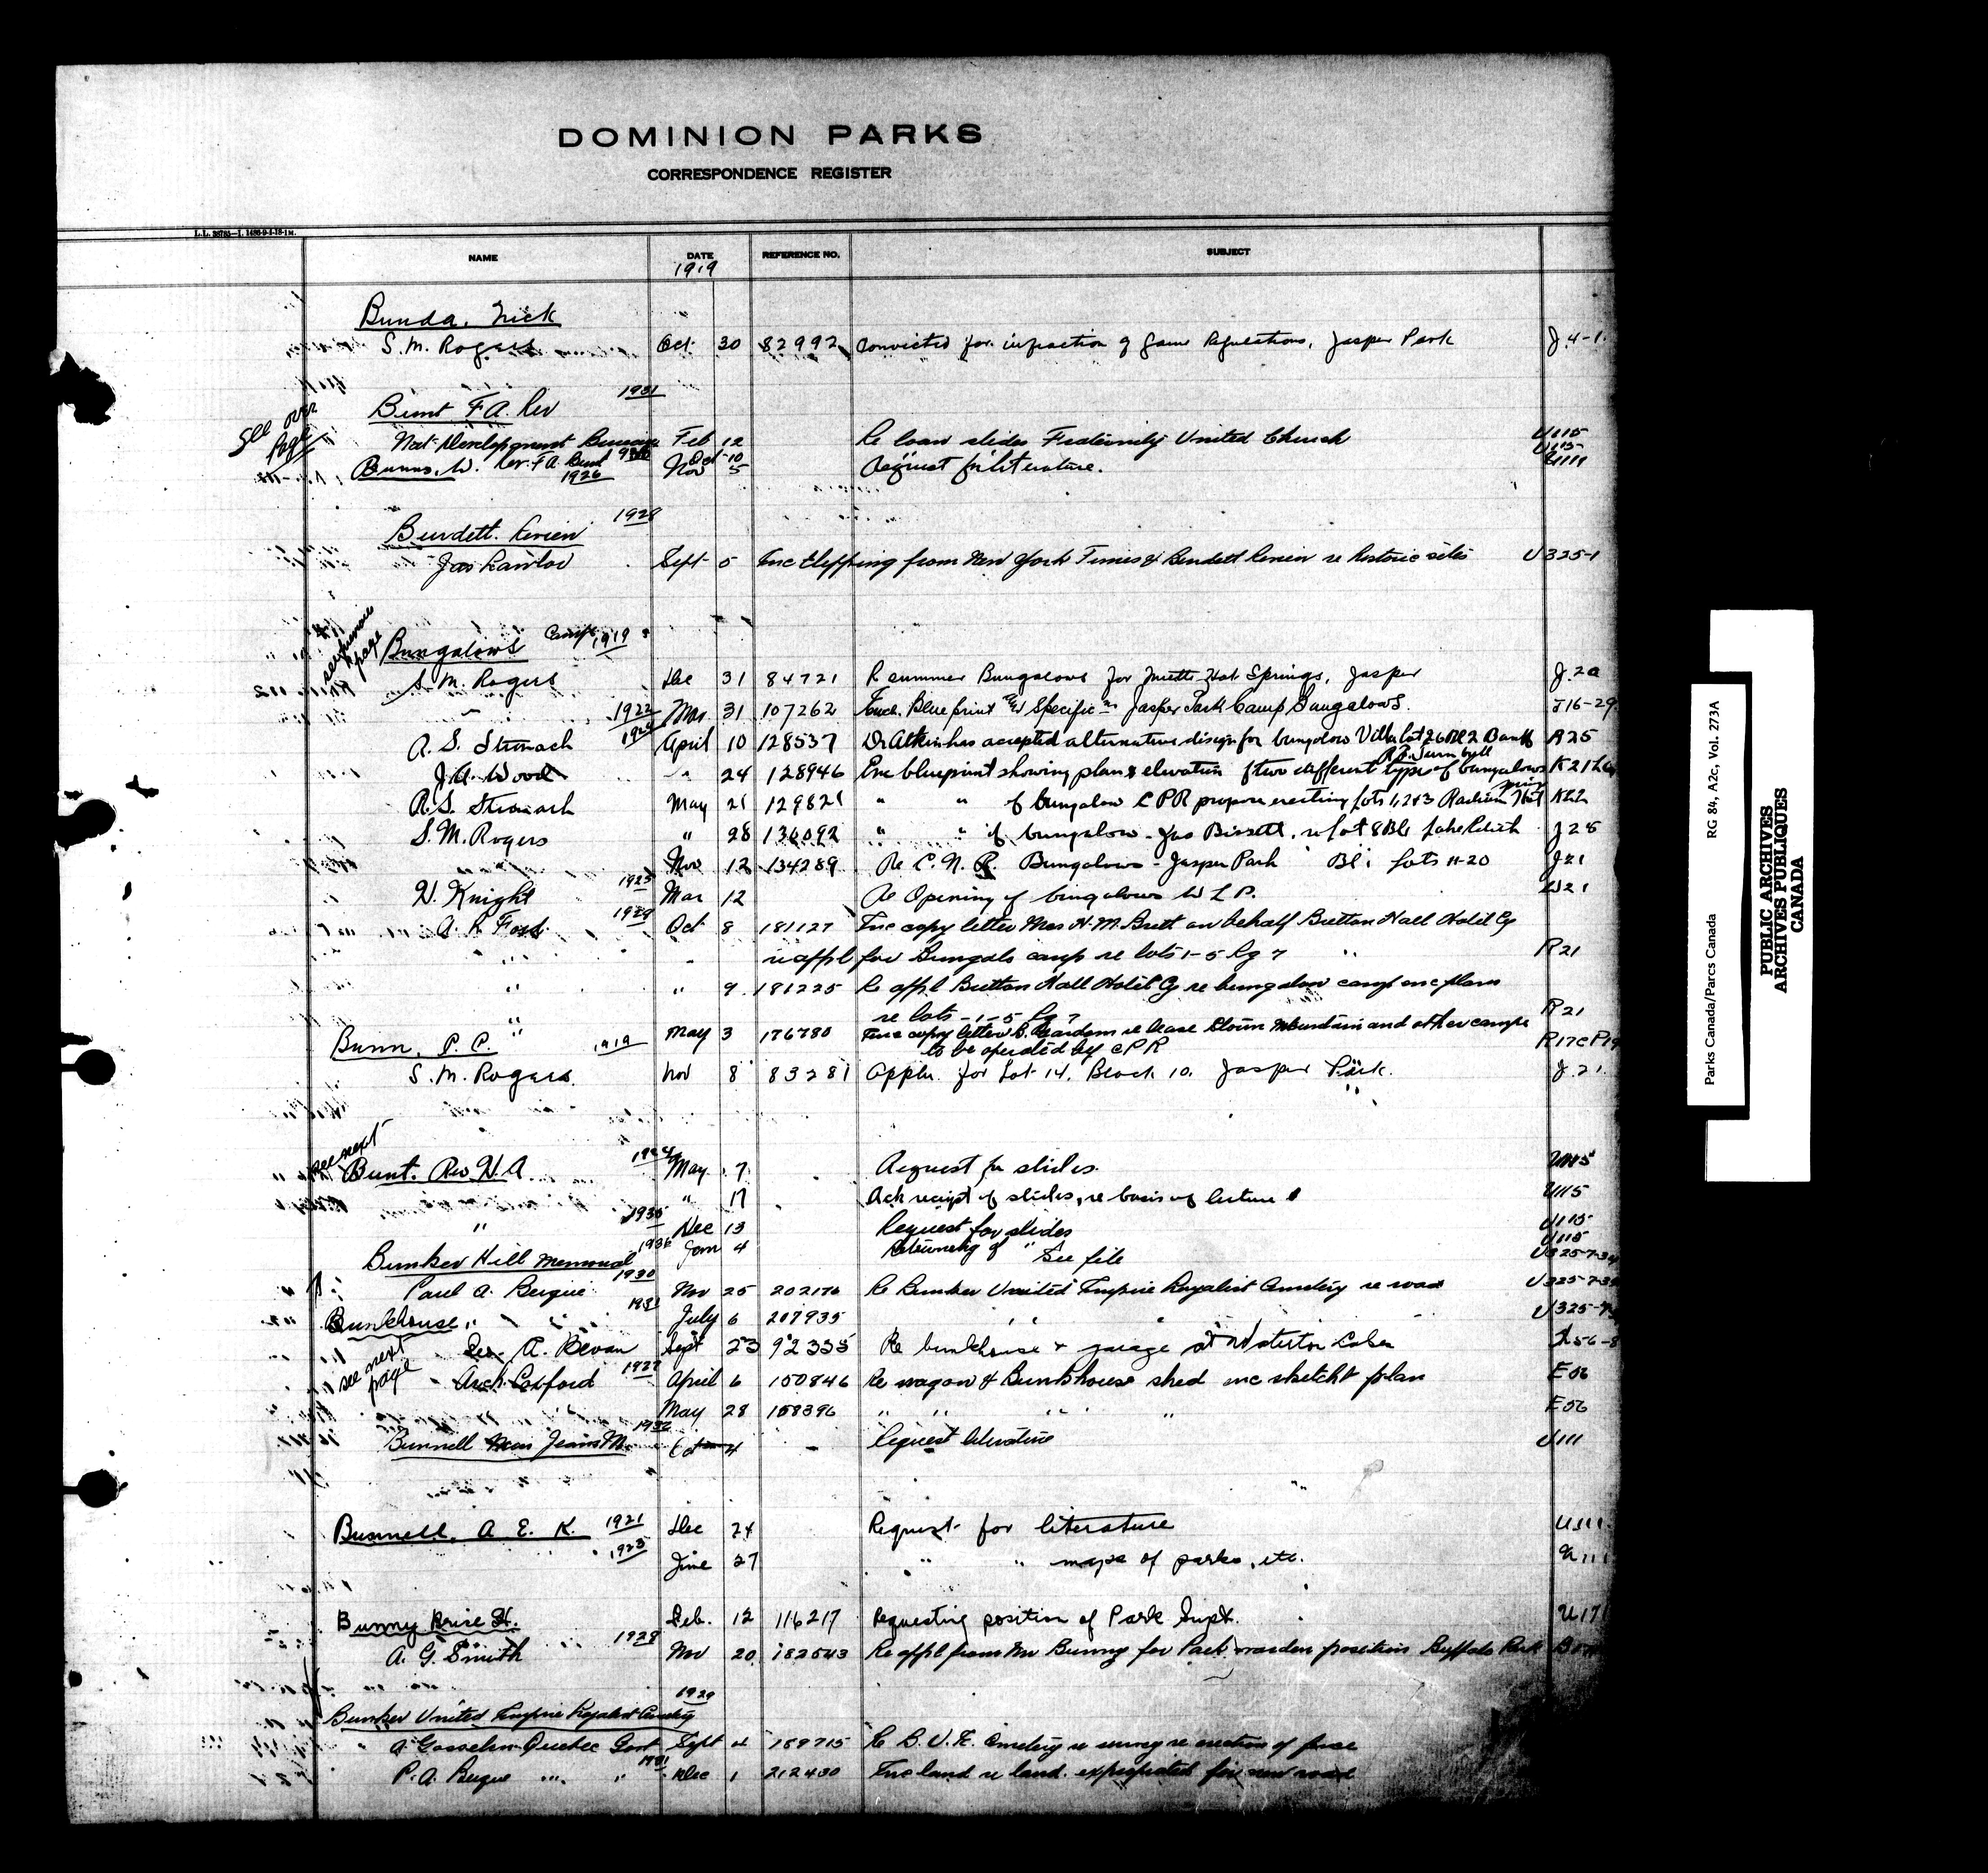 DOMINION PARKS
CORRESPONDENCE REGISTER
L.L. 38785—I. 1486-9-4-18-1M.
NAME DATE REFERENCE NO. SUBJECT
1919
Bunda, Nick
S. M. Rogers Oct 30 82992 Convicted for infraction of Game Regulations, Jasper Park J.4-1
1931
Bunt F A. Rev
See over Page
Nat Development Bureau Feb 12 Re loan slides Fraternity United Church U115
Rev. F A Bunt Oct 10 " " U115
Bunns, W. 1926 Nov 5 Request for literature. U111
1928
Burdett. Review
Jas Lawlor Sept 5 Enc Clipping from New York Times & Burdett Review re historic sites U325-1
see previous page
Bungalows Camp 1919
S. M. Rogers Dec 31 84721 Re summer Bungalows for Miette Hot Springs, Jasper J.20
" 1922 Mar 31 107262 Enc. Blueprint and Specific ns Jasper Park Camp Bungalows. J16-29
R. S. Stronach April 10 128537 Dr Atkin has accepted alternative design for bungalow Villa lot 26 Bl 2 Banff B25
J. A. Wood " 24 128946 Enc blueprint showing plan & elevation of two different types of bungalows
R. S. Stronach May 21 129821 " " of bungalow C P R propose erecting lots 1, 2 & 3 Radium Hot K22
S. M. Rogers " 28 " " of bungalow - Jas Bissett, re lot 8 Bl 1 Lake Edith J28
Nov 12 134289 Re C. N. R. Bungalows - Jasper Park Bl 1 lots 11-20 J21
H. Knight 1925 Mar 12 Re Opening of bungalows W L P. W21
1929 Oct 8 181127 Enc copy letter Mrs H. M. Brett on behalf Bretton Hall Hotel Co
" re appl for Bungalo camp re lots 1-5 Bg 7 " R21
" " 9 181225 Re appl Bretton Hall Hotel Co re bungalow camp enc plans
re lots - 1-5 Bg 7 R21
" May 3 176780 Enc copy letter re lease Storm Mountain and other camps
to be operated by C P R
Bunn, P. C. 1919
S. M. Rogers. Nov 8 83281 Appln. for Lot 14, Block 10. Jasper Park. J.21.
see next
Bunt. Rev H. A May 7 Request for slides. U115
" 17 Ack receipt of slides, re basis of lecture U115
" 1935 Dec 13 Request for slides U115
1936 Jan 4 Returning of " U115
Bunker Hill Memorial See file
1930
Paul A. Beique Nov 25 202176 Re Bunker United Empire Loyalist Cemetery re road
" July 6 207935 " "
Bunkhouse
see next page
A. Bevan Sept 23 92335 Re bunkhouse & garage at Waterton Lakes
1922 April 6 Re wagon & Bunkhouse shed enc sketch plan E56
May 28 108396 " " " " E56
1932
Bunnell Jean M. 4 Request literature U111
Bunnell, A E. K. 1921 Dec 24 Request for literature U111
1923 June 27 " " maps of parks, etc. U111
Bunny Brice H. Feb. 12 116217 Requesting position of Park Supt.
A. G. Smith 1928 Nov 20 182543 Re appl from Mr Bunny for Park warden position Buffalo Park
1929
Bunker United Empire Loyalist Cemetery
A Gosselin Quebec Govt Sept 4 189715 Re B. U. E. Cemetery re survey re erection of fence
P. A. Beique " " 1931 Dec 1 212430 Enc land re land. expropriated for new road
Parks Canada/Parcs Canada RG 84, A2c, Vol. 273A
PUBLIC ARCHIVES
ARCHIVES PUBLIQUES
CANADA